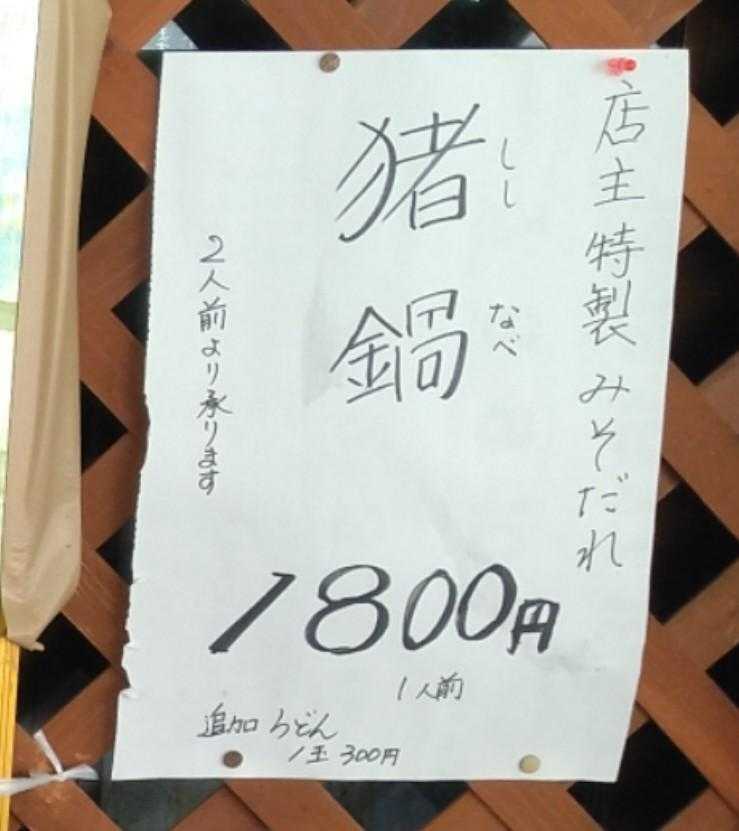 店主特製みそだれ
しし
なべ
猪鍋
2人前より承ります
1800円
1人前
追加うどん
1玉300円